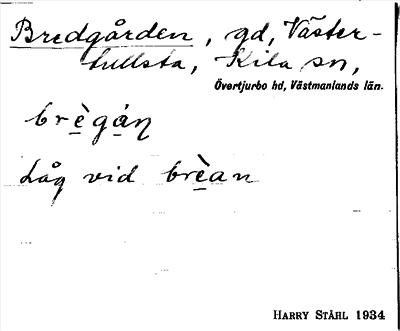 Bredgården, gd, Väster-
tullsta, Kila sn,
Övertjurbo hd, Västmanlands län.
brègáṇ
Låg vid brèan
HARRY STÅHL 1934